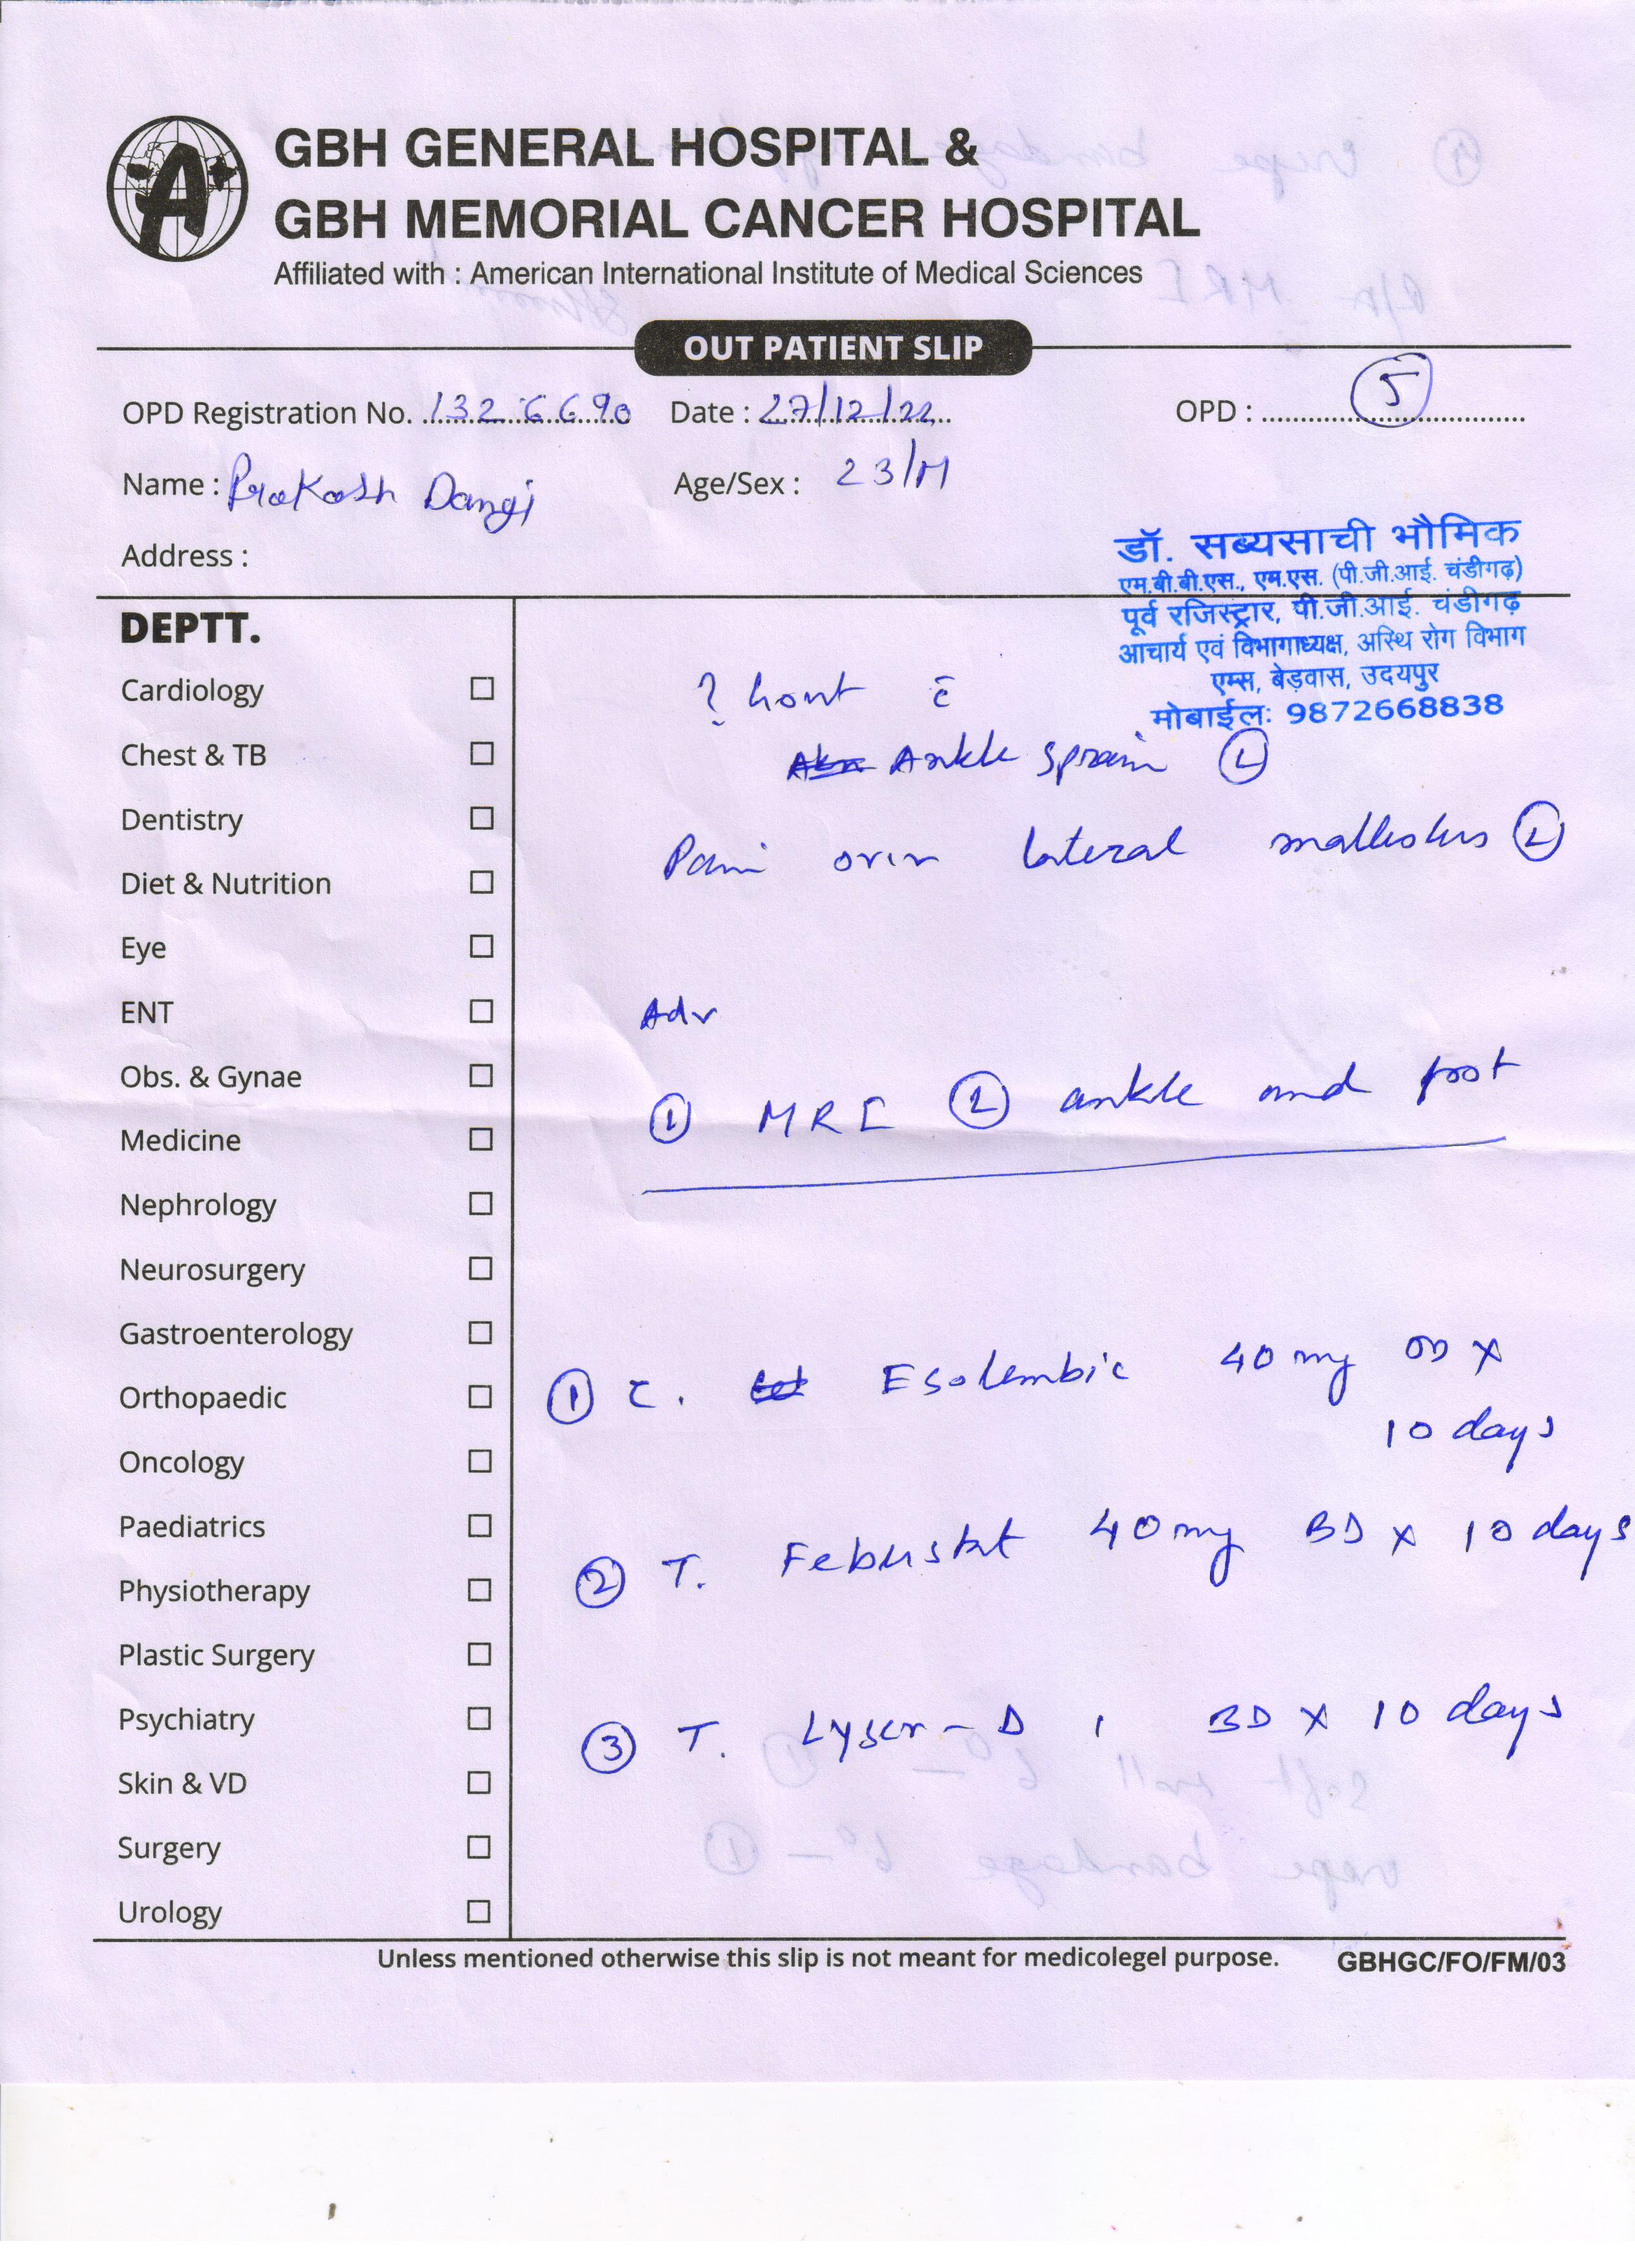 GBH GENERAL HOSPITAL &
GBH MEMORIAL CANCER HOSPITAL
Affiliated with : American International Institute of Medical Sciences
OUT PATIENT SLIP
OPD Registration No. 1326690 Date : 27/12/22 OPD : 5
Name : Prakash Dangi Age/Sex : 23/M
Address :
डॉ. सब्यसाची भौमिक
एम.बी.बी.एस., एम.एस. (पी.जी.आई. चंडीगढ़)
पूर्व रजिस्ट्रार, पी.जी.आई. चंडीगढ़
आचार्य एवं विभागाध्यक्ष, अस्थि रोग विभाग
एम्स, बेड़वास, उदयपुर
मोबाईल: 9872668838
DEPTT.
Cardiology
Chest & TB
Dentistry
Diet & Nutrition
Eye
ENT
Obs. & Gynae
Medicine
Nephrology
Neurosurgery
Gastroenterology
Orthopaedic
Oncology
Paediatrics
Physiotherapy
Plastic Surgery
Psychiatry
Skin & VD
Surgery
Urology
? Gout c̄
Ankle sprain L
Pain over lateral malleolus L
Adv
1 MRI L ankle and foot
1 C. Esolembic 40 mg OD x
10 days
2 T. Febustat 40 mg BD x 10 days
3 T. Lyser - D 1 BD x 10 days
Unless mentioned otherwise this slip is not meant for medicolegel purpose. GBHGC/FO/FM/03